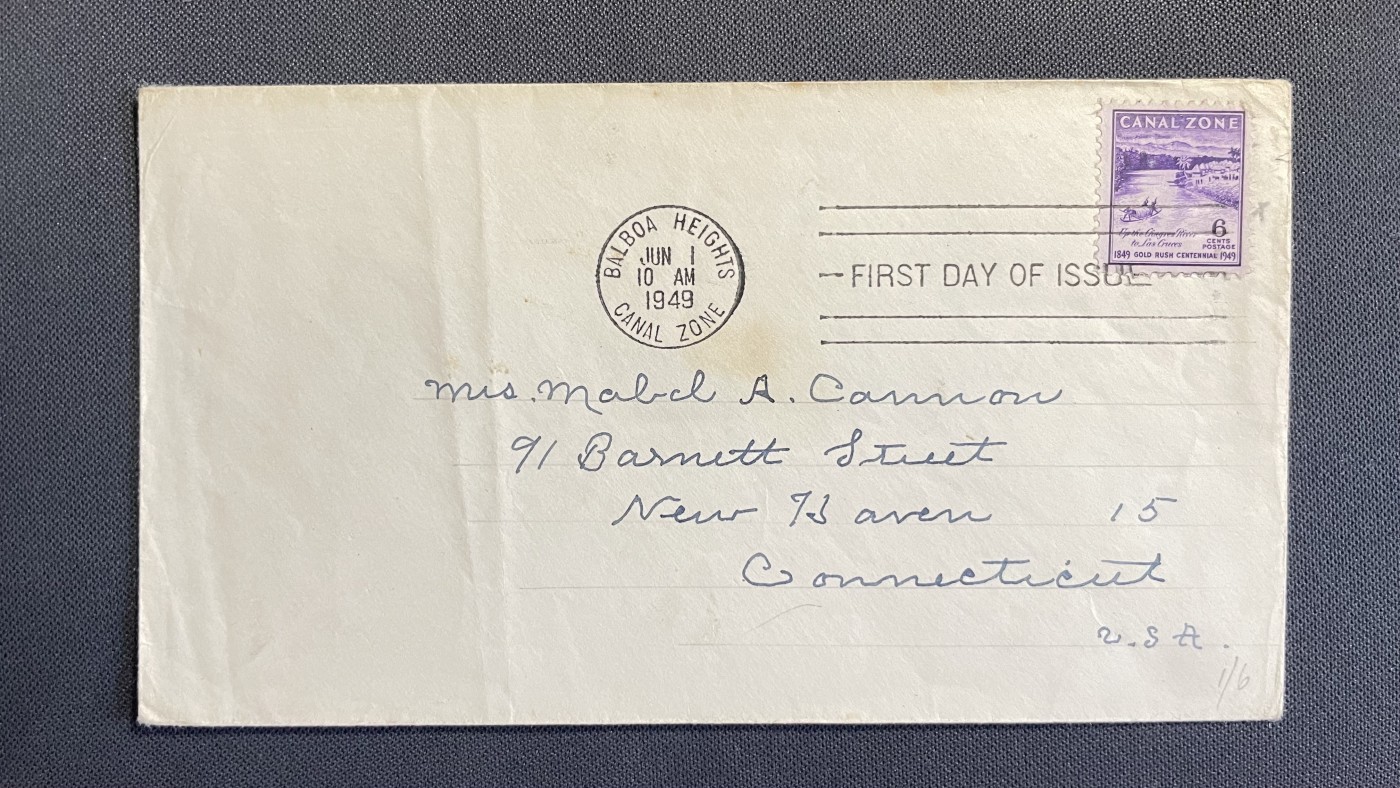 CANAL ZONE
Up the Chagres River
to Las Cruces
6
CENTS
POSTAGE
1849 GOLD RUSH CENTENNIAL 1949
BALBOA HEIGHTS
JUN 1
10 AM
1949
CANAL ZONE
FIRST DAY OF ISSUE
Mrs. Mabel A. Cannon
91 Barnett Street
New Haven 15
Connecticut
U.S.A.
1/6